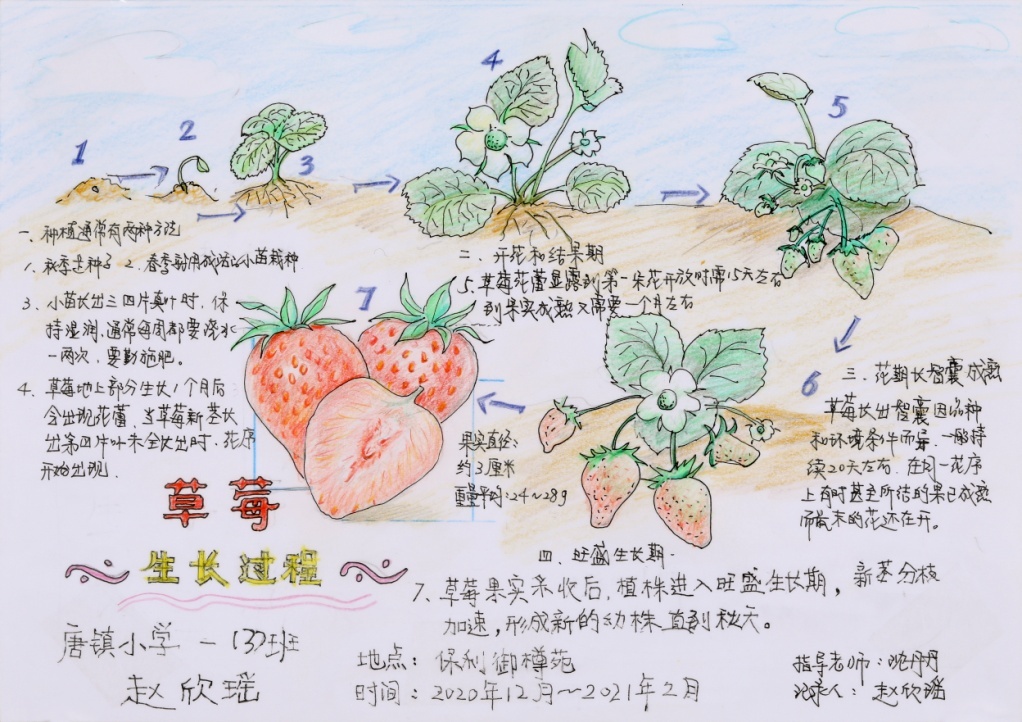 1
2
3
4
5
6
7
一、种植通常有两种方法
1、秋季走种子 2、春季用成活的小苗栽种
3、小苗长出三四片真叶时，保
持湿润，通常每周都要浇水
一两次，要勤施肥。
4、草莓地上部分生长1个月后
会出现花蕾，当草莓新茎长
出第四片叶未全长出时，花序
开始出现．
二、开花和结果期
5、草莓花蕾显露到第一朵花开放时需15天左右
到果实成熟又需要一个月左右
果实直径、
约3厘米
重量平均：24～28g
三、花期长 成熟
草莓长出 因品种
和环境条件而异，一般持
续20天左右．在同一花序
上有时甚至所结的果已成熟
而最末的花还在开。
四、旺盛生长期．
7、草莓果实采收后，植株进入旺盛生长期，新茎分枝
加速，形成新的幼株直到秋天。
草莓
生长过程
唐镇小学一（3）班
赵欣瑶
地点：保利御樽苑
时间：2020年12月～2021年2月
指导老师：丹丹
记录人：赵欣瑶